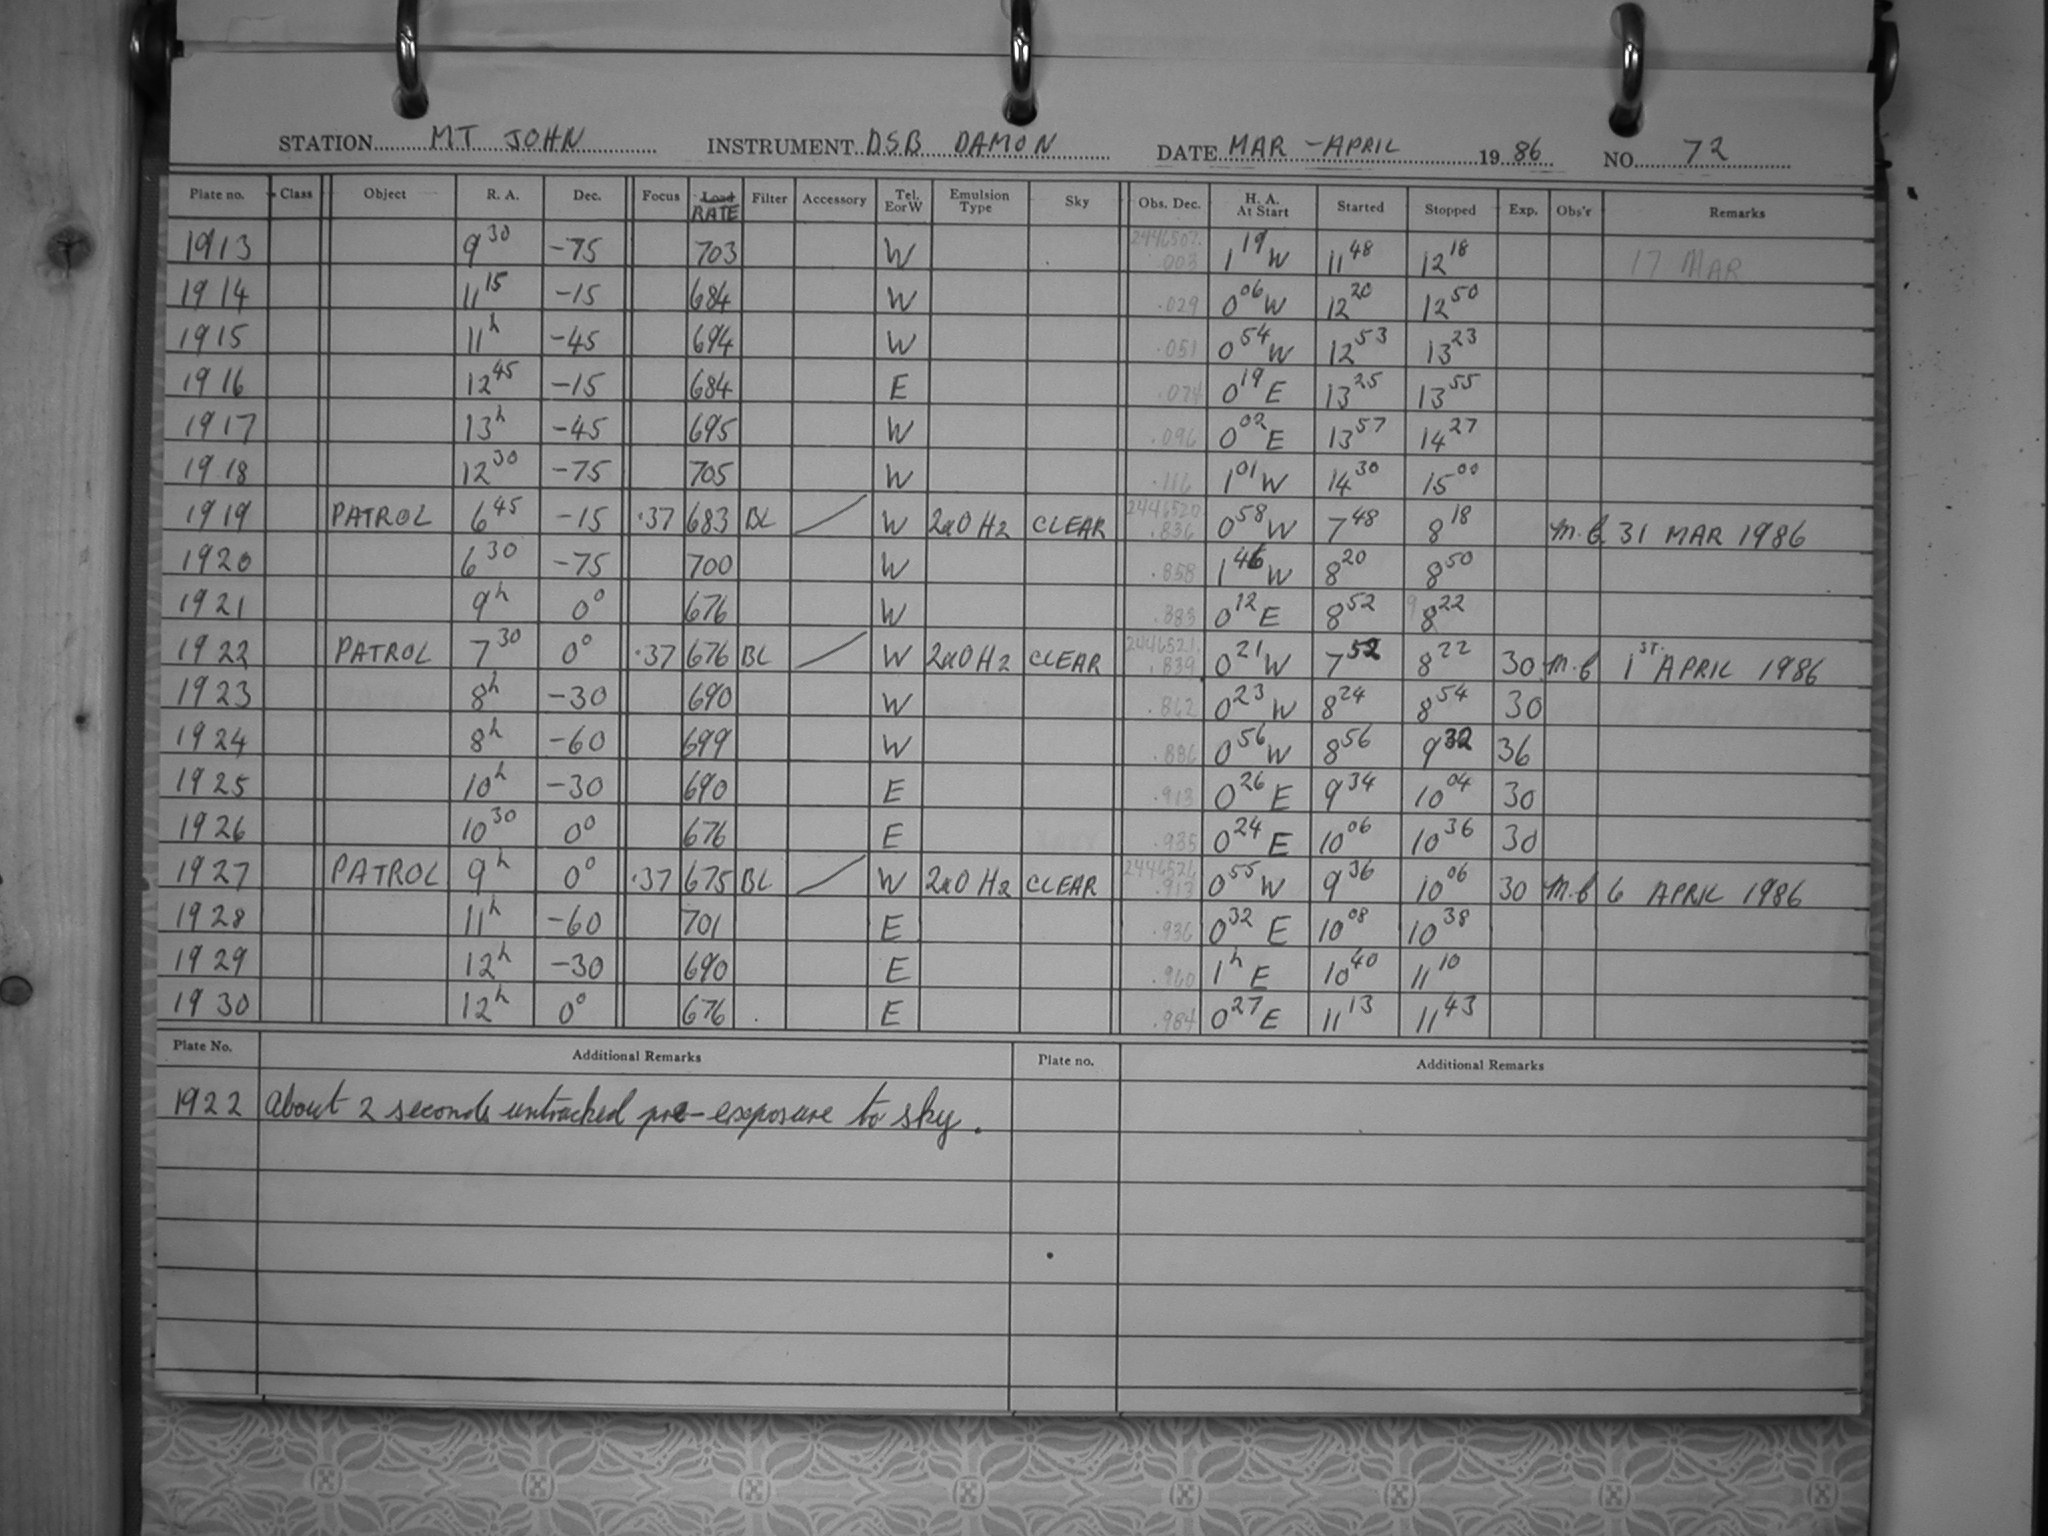 STATION MT JOHN INSTRUMENT DSB DAMON DATE MAR - APRIL 1986 NO. 72
Plate no. Class Object R. A. Dec. Focus Load RATE Filter Accessory Tel. E or W Emulsion Type Sky Obs. Dec. H. A. At Start Started Stopped Exp. Obs'r Remarks
1913 9 30 -75 703 W 2446507. .003 1 19 W 11 48 12 18 17 MAR
1914 11 15 -15 684 W .029 0 06 W 12 20 12 50
1915 11 h -45 694 W .051 0 54 W 12 53 13 23
1916 12 45 -15 684 E .074 0 19 E 13 25 13 55
1917 13 h -45 695 W .096 0 02 E 13 57 14 27
1918 12 30 -75 705 W .116 1 01 W 14 30 15 00
1919 PATROL 6 45 -15 .37 683 BL W 2aO H2 CLEAR 2446520 .836 0 58 W 7 48 8 18 M.C 31 MAR 1986
1920 6 30 -75 700 W .858 1 46 W 8 20 8 50
1921 9 h 0° 676 W .883 0 12 E 8 52 9 8 22
1922 PATROL 7 30 0° .37 676 BL W 2aO H2 CLEAR 2446521. .839 0 21 W 7 52 8 22 30 M.C 1ST. APRIL 1986
1923 8 h -30 690 W .862 0 23 W 8 24 8 54 30
1924 8 h -60 699 W .886 0 56 W 8 56 9 32 36
1925 10 h -30 690 E .913 0 26 E 9 34 10 04 30
1926 10 30 0° 676 E .935 0 24 E 10 06 10 36 30
1927 PATROL 9 h 0° .37 675 BL W 2aO H2 CLEAR 2446526 .913 0 55 W 9 36 10 06 30 M.C 6 APRIL 1986
1928 11 h -60 701 E .936 0 32 E 10 08 10 38
1929 12 h -30 690 E .960 1 h E 10 40 11 10
1930 12 h 0° 676 E .984 0 27 E 11 13 11 43
Plate No. Additional Remarks Plate no. Additional Remarks
1922 About 2 seconds untracked pre-exposure to sky.